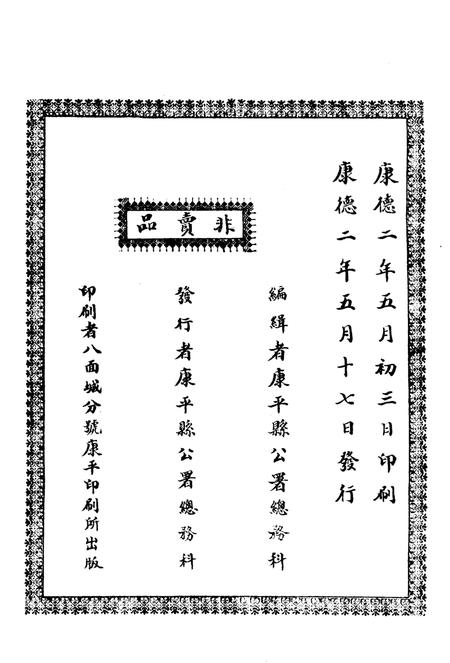 康德二年五月初三日印刷
康德二年五月十七日發行
非賣品
編緝者康平縣公署總務科
發行者康平縣公署總務科
印刷者八面城分號康平印刷所出版